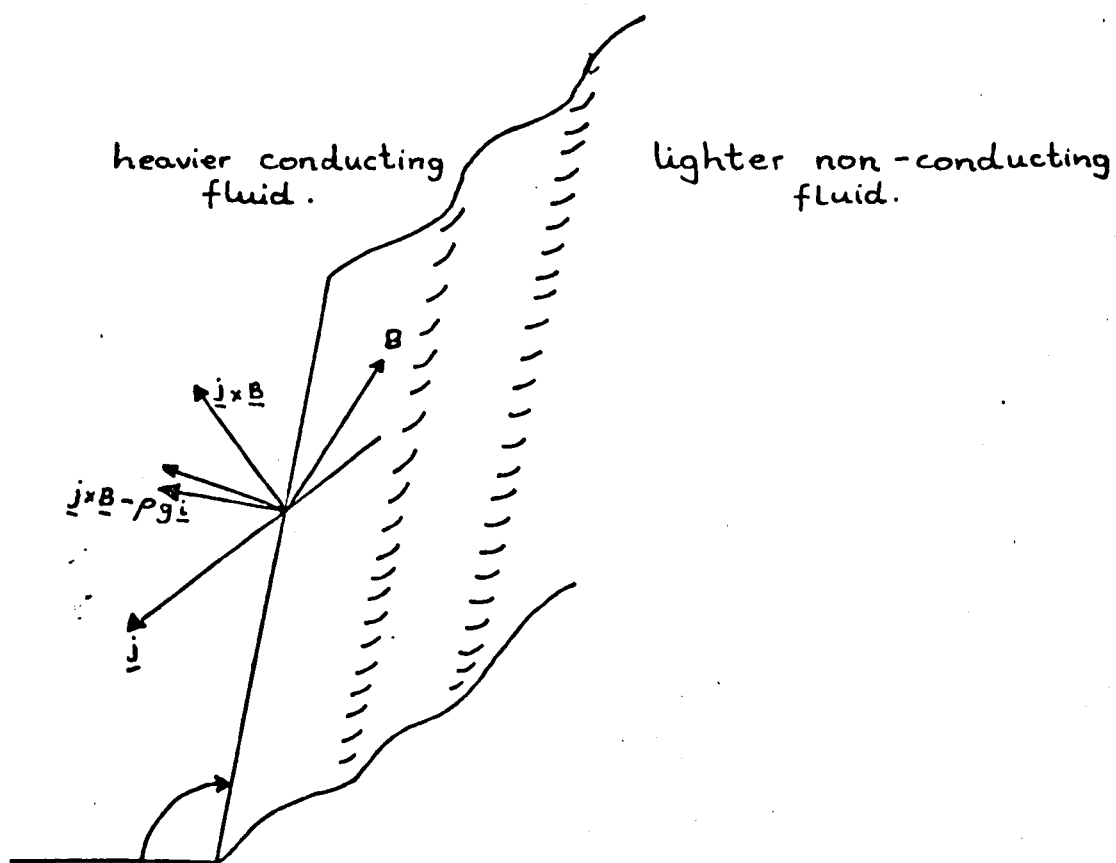 heavier conducting
fluid.
lighter non-conducting
fluid.
B
j × B
j × B - ρ g i
j